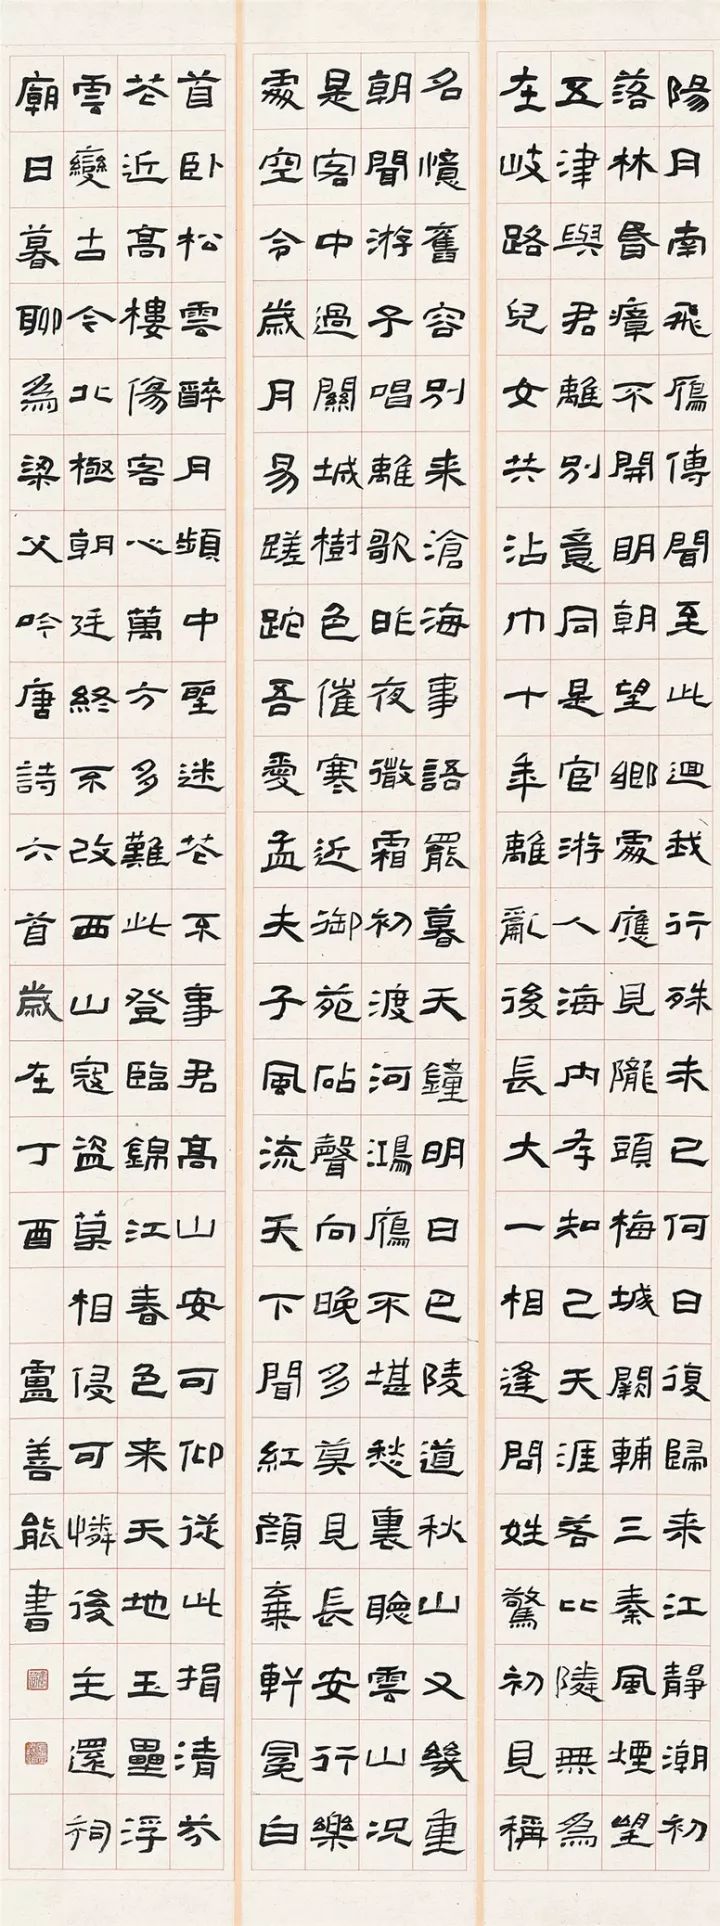 陽月南飛鴈傳聞至此迴我行殊未已何日復歸来江靜潮初
落林昏瘴不開明朝望鄉處應見隴頭梅城闕輔三秦風煙望
五津與君離別意同是宦游人海内存知己天涯若比隣無為
在岐路兒女共沾巾十年離亂後長大一相逢問姓驚初見稱
名憶舊容別来滄海事語罷暮天鐘明日巴陵道秋山又幾重
朝聞游子唱離歌昨夜微霜初渡河鴻鴈不堪愁裏聽雲山况
是客中過關城樹色催寒近御苑砧聲向晚多莫見長安行樂
處空令歲月易蹉跎吾愛孟夫子風流天下聞紅顏棄軒冕白
首卧松雲醉月頻中聖迷花不事君高山安可仰從此揖清芬
花近高樓傷客心萬方多難此登臨錦江春色来天地玉壘浮
雲變古今北極朝廷終不改西山寇盜莫相侵可憐後主還祠
廟日暮聊為梁父吟唐詩六首歲在丁酉 盧善能書